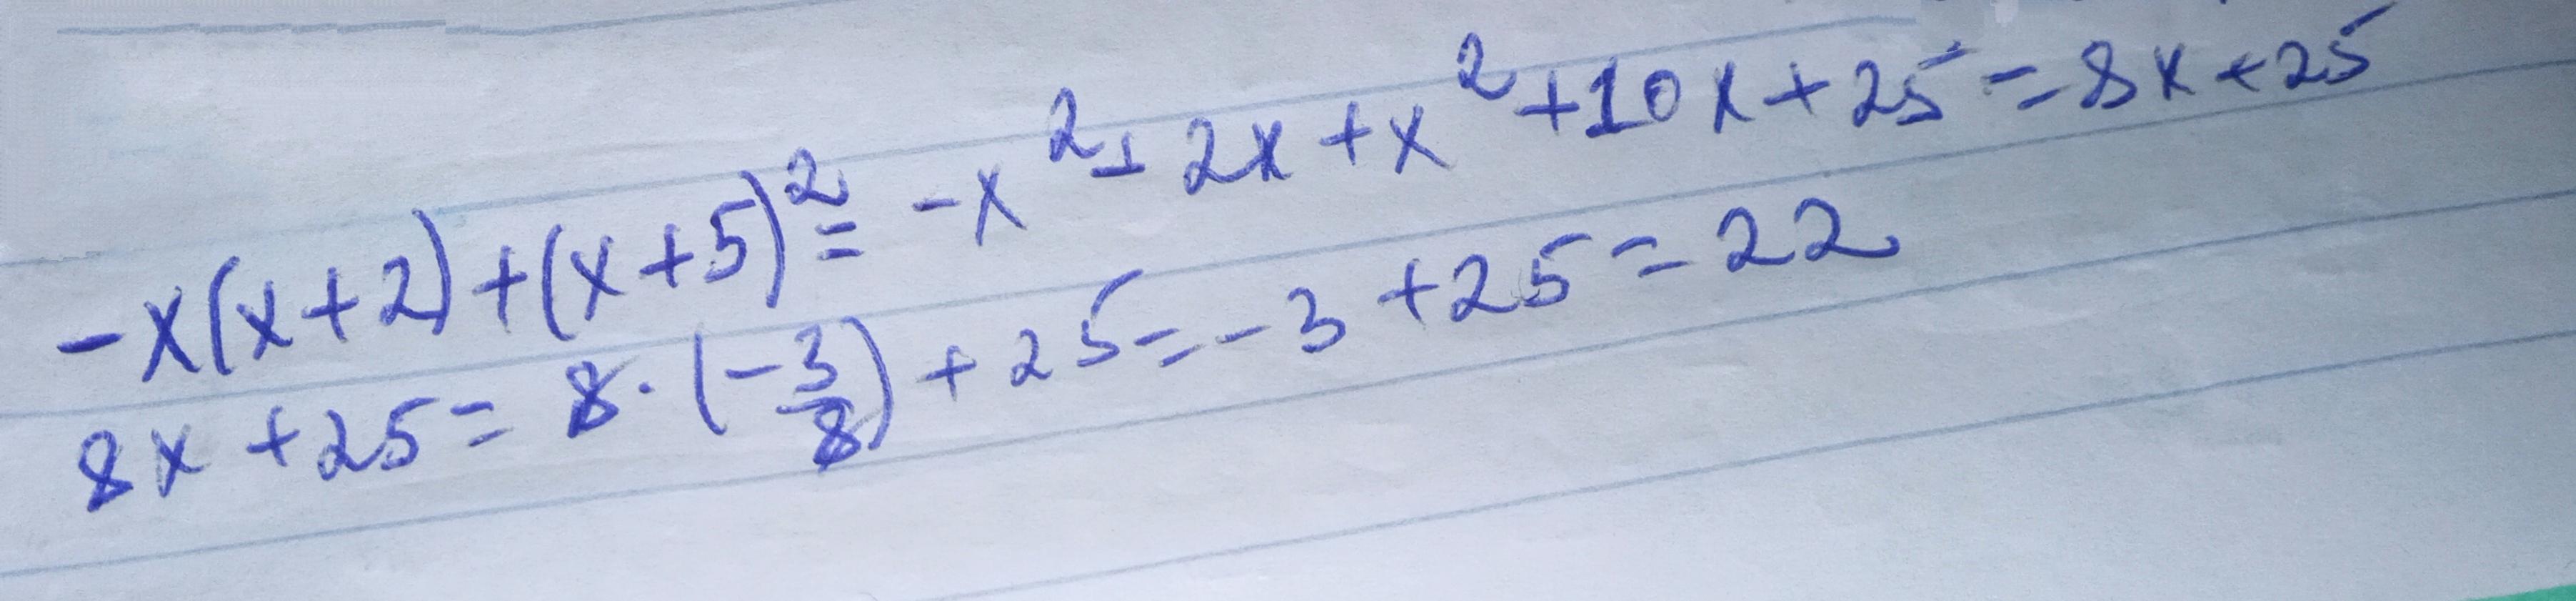 -x(x+2)+(x+5)²=-x²-2x+x²+10x+25=8x+25
8x+25=8·(-3/8)+25=-3+25=22